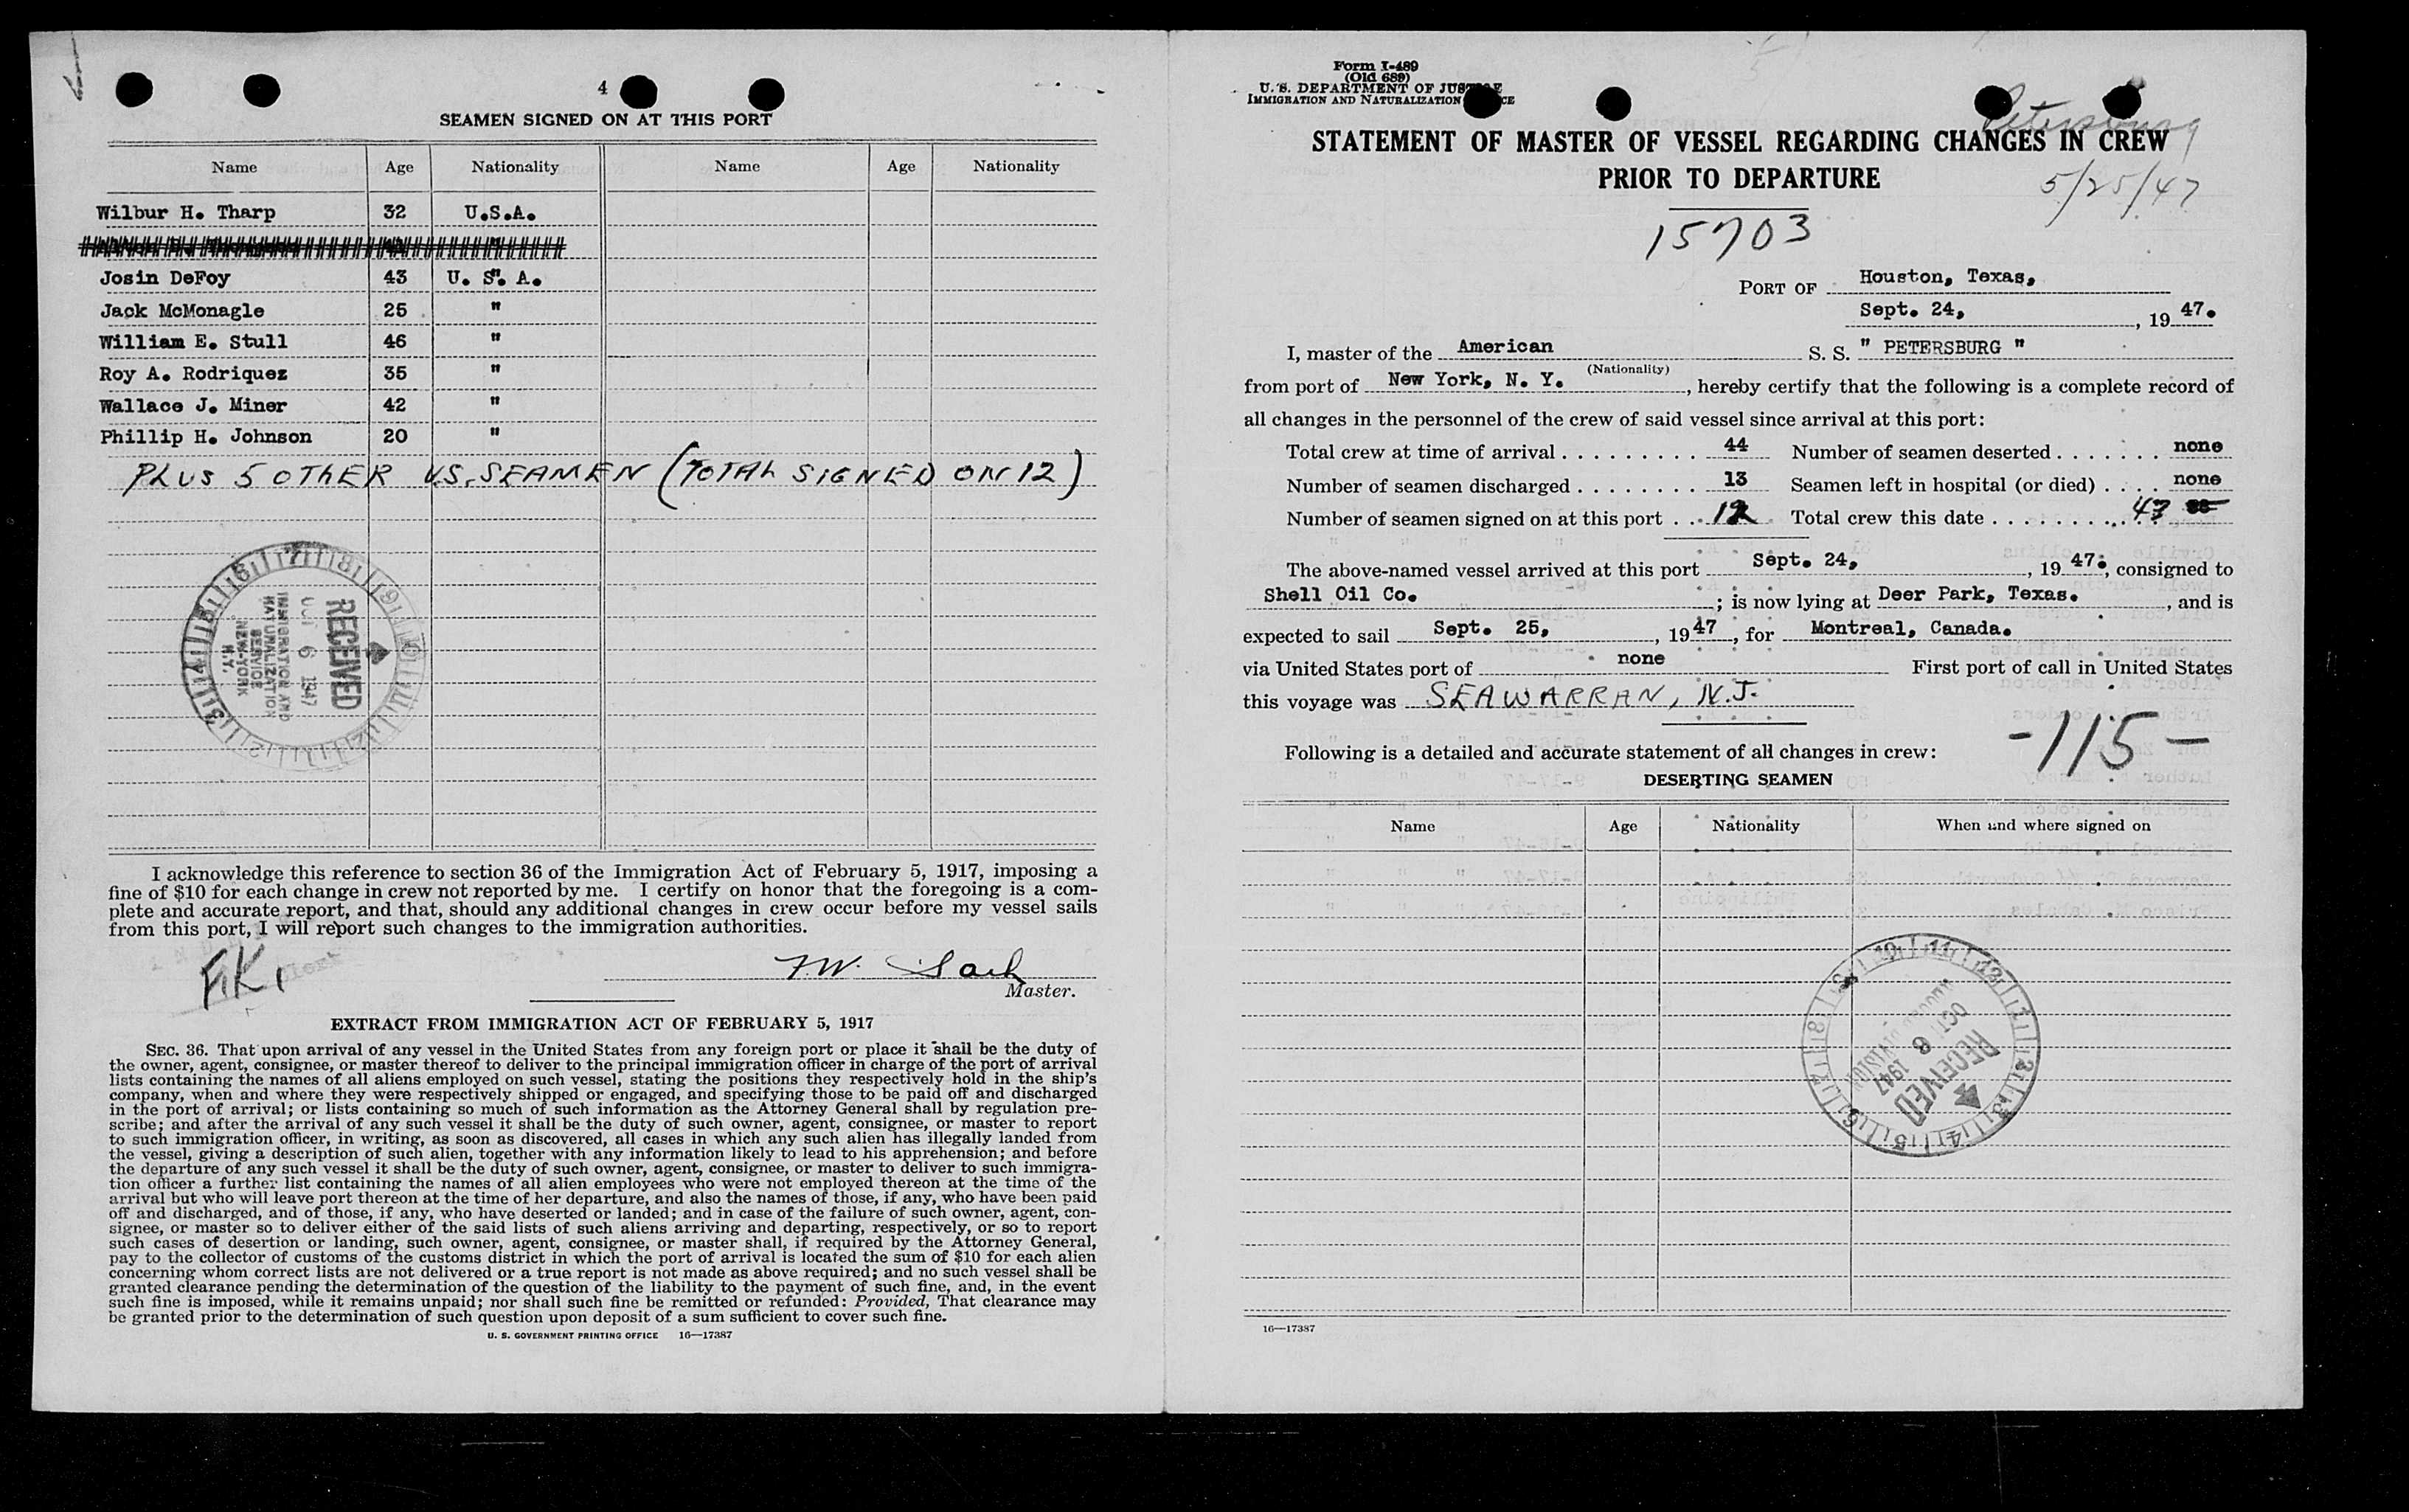 4
SEAMEN SIGNED ON AT THIS PORT
Name Age Nationality Name Age Nationality
Wilbur H. Tharp 32 U.S.A.
Josin DeFoy 43 U. S. A.
Jack McMonagle 25 "
William E. Stull 46 "
Roy A. Rodriquez 35 "
Wallace J. Miner 42 "
Phillip H. Johnson 20 "
PLUS 5 OTHER U.S. SEAMEN (TOTAL SIGNED ON 12)
RECEIVED
OCT 6 1947
IMMIGRATION AND
NATURALIZATION
SERVICE
NEW-YORK
N.Y.
I acknowledge this reference to section 36 of the Immigration Act of February 5, 1917, imposing a
fine of $10 for each change in crew not reported by me. I certify on honor that the foregoing is a com-
plete and accurate report, and that, should any additional changes in crew occur before my vessel sails
from this port, I will report such changes to the immigration authorities.
Master.
EXTRACT FROM IMMIGRATION ACT OF FEBRUARY 5, 1917
SEC. 36. That upon arrival of any vessel in the United States from any foreign port or place it shall be the duty of
the owner, agent, consignee, or master thereof to deliver to the principal immigration officer in charge of the port of arrival
lists containing the names of all aliens employed on such vessel, stating the positions they respectively hold in the ship's
company, when and where they were respectively shipped or engaged, and specifying those to be paid off and discharged
in the port of arrival; or lists containing so much of such information as the Attorney General shall by regulation pre-
scribe; and after the arrival of any such vessel it shall be the duty of such owner, agent, consignee, or master to report
to such immigration officer, in writing, as soon as discovered, all cases in which any such alien has illegally landed from
the vessel, giving a description of such alien, together with any information likely to lead to his apprehension; and before
the departure of any such vessel it shall be the duty of such owner, agent, consignee, or master to deliver to such immigra-
tion officer a further list containing the names of all alien employees who were not employed thereon at the time of the
arrival but who will leave port thereon at the time of her departure, and also the names of those, if any, who have been paid
off and discharged, and of those, if any, who have deserted or landed; and in case of the failure of such owner, agent, con-
signee, or master so to deliver either of the said lists of such aliens arriving and departing, respectively, or so to report
such cases of desertion or landing, such owner, agent, consignee, or master shall, if required by the Attorney General,
pay to the collector of customs of the customs district in which the port of arrival is located the sum of $10 for each alien
concerning whom correct lists are not delivered or a true report is not made as above required; and no such vessel shall be
granted clearance pending the determination of the question of the liability to the payment of such fine, and, in the event
such fine is imposed, while it remains unpaid; nor shall such fine be remitted or refunded: Provided, That clearance may
be granted prior to the determination of such question upon deposit of a sum sufficient to cover such fine.
U. S. GOVERNMENT PRINTING OFFICE 16—17387
Form I-489
(Old 689)
U. S. DEPARTMENT OF JUSTICE
IMMIGRATION AND NATURALIZATION SERVICE
Petersburg
STATEMENT OF MASTER OF VESSEL REGARDING CHANGES IN CREW
PRIOR TO DEPARTURE
5/25/47
15703
PORT OF Houston, Texas,
Sept. 24, , 19 47.
I, master of the American S. S. " PETERSBURG "
(Nationality)
from port of New York, N. Y. , hereby certify that the following is a complete record of
all changes in the personnel of the crew of said vessel since arrival at this port:
Total crew at time of arrival . . . . . . . . . 44 Number of seamen deserted . . . . . . . none
Number of seamen discharged . . . . . . . . 13 Seamen left in hospital (or died) . . . . none
Number of seamen signed on at this port . . . 12 Total crew this date . . . . . . . . . 43
The above-named vessel arrived at this port Sept. 24, , 19 47. , consigned to
Shell Oil Co. ; is now lying at Deer Park, Texas. , and is
expected to sail Sept. 25, , 19 47 , for Montreal, Canada.
via United States port of none First port of call in United States
this voyage was SEAWARRAN, N.J.
Following is a detailed and accurate statement of all changes in crew:
-115-
DESERTING SEAMEN
Name Age Nationality When and where signed on
RECEIVED
OCT 6 1947
16—17387